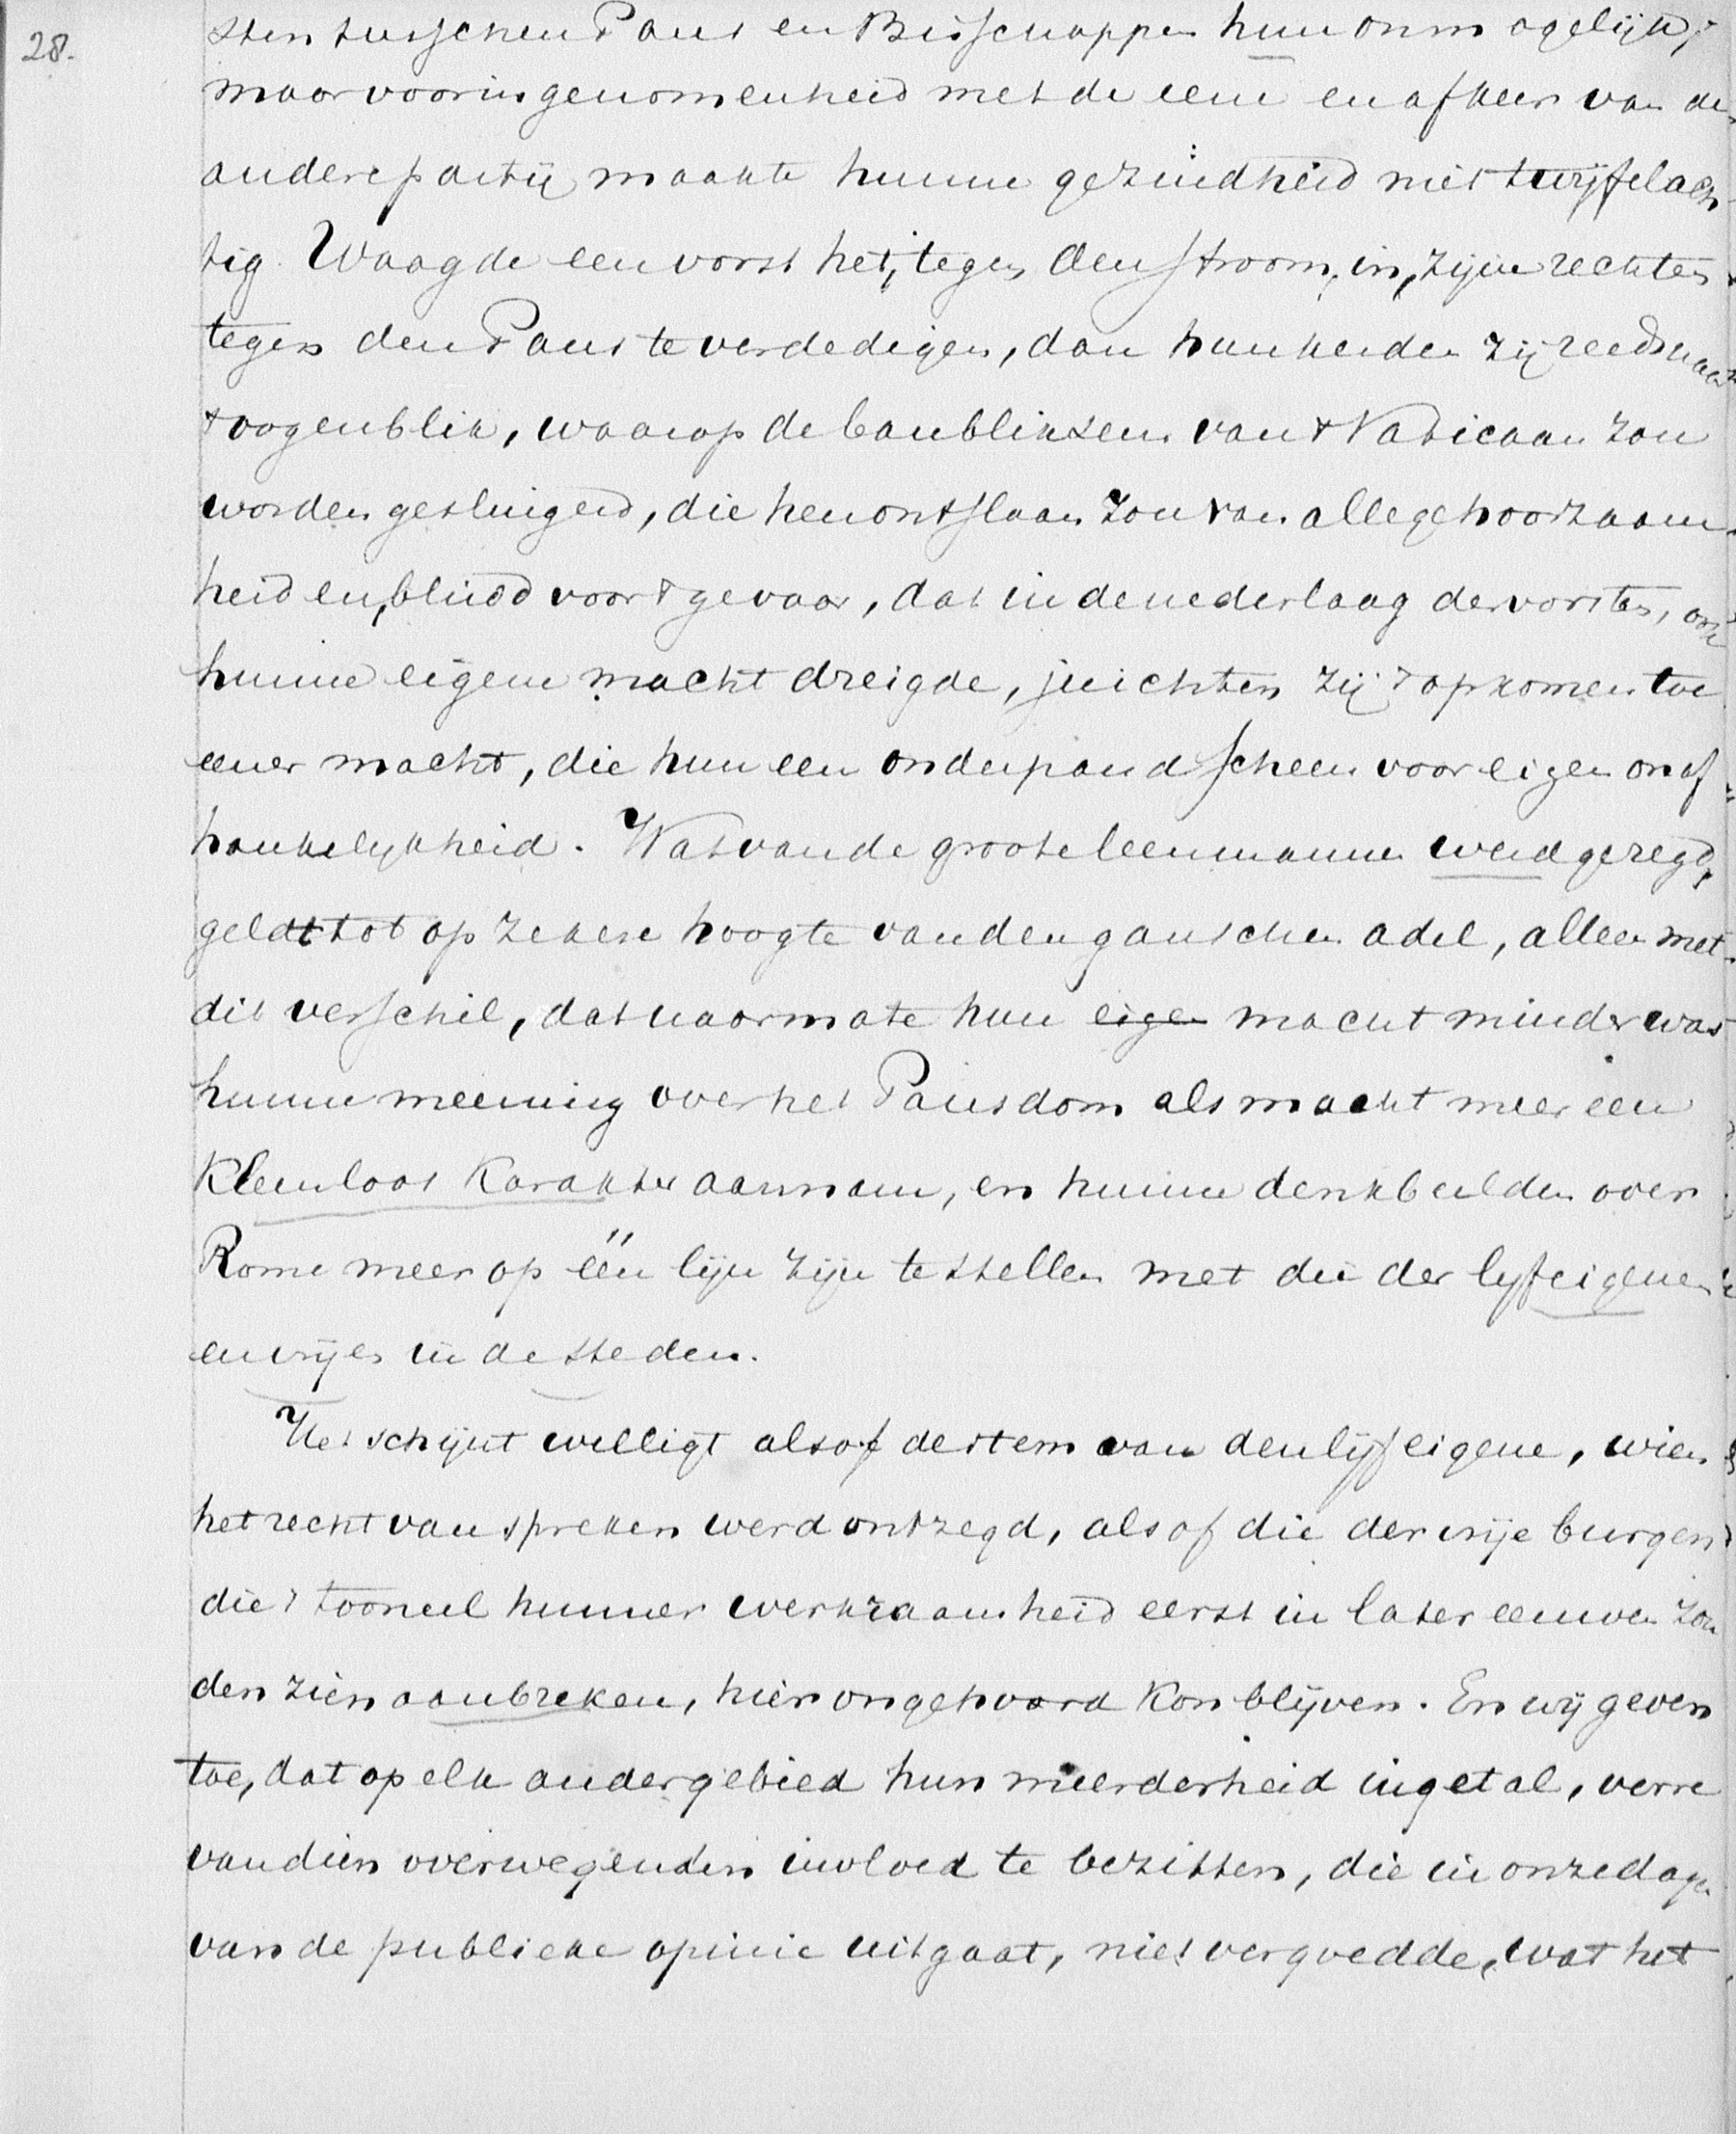 28.
sten tusschen Paus en Bisschoppen hun onmogelijk;
maar vooringenomenheid met de eene en afkeer van de
andere partij maakte hunne gezindheid niet twijfelach-
tig. Waagde een vorst het, tegen den stroom, in, zijne rechten
tegen den Paus te verdedigen, dan hunkerden zij reeds naar
't oogenblik, waarop de banbliksem van 't Vaticaan zou
worden geslingerd, die hen ontslaan zou van alle gehoorzaam-
heid en, blind voor 't gevaar, dat in de nederlaag der vorsten, ook
hunne eigene macht dreigde, juichten zij 't opkomen toe
eener macht, die hun een onderpand scheen voor eigen onaf=
hankelykheid. Wat van de groote leenmannen werd gezegd,
geldt tot op zekere hoogte van den ganschen adel, alleen met
dit verschil, dat naarmate hun eigen macht minder was
hunne meening over het Pausdom als macht meer een
kleurloos karakter aannam, en hunne denkbeelden over
Rome meer op één lijn zijn te stellen met die der lyfeigenen
en vrijen in de steden.
Het schijnt welligt alsof de stem van den lijfeigene, wien
het recht van spreken werd ontzegd, alsof die der vrije burgers
die 't tooneel hunner werkzaamheid eerst in later eeuwen zou
den zien aanbreken, hier ongehoord kon blijven. En wij geven
toe, dat op elk ander gebied hun meerderheid in getal, verre
van dien overwegenden invloed te bezitten, die in onze dagen
van de publieke opinie uitgaat, niet vergoedde, wat het